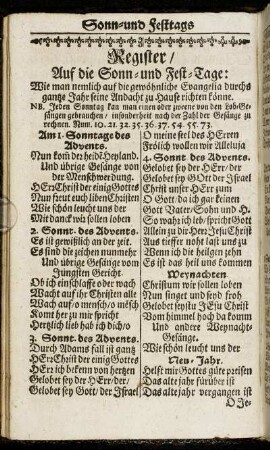 Sonn-und Festtags
Register/
Auf die Sonn- und Fest-Tage:
Wie man nemlich auf die gewöhnliche Evangelia durchs
gantze Jahr seine Andacht zu Hause richten könne.
NB. Jeden Sonntag kan man einen oder zweene von den Lob-Ge-
sängen gebrauchen / insonderheit nach der Zahl der Gesänge zu
rechnen. Num. 19. 21. 32. 35. 36. 37. 54. 55. 73.
Am 1. Sonntage des
Advents.
Nun kom̃ der heid? Heyland.
Und übrige Gesänge von
der Menschwerdung.
HErr Christ der einig Gottes
Nun freut euch lieben Christen
Wie schön leucht uns der
Mit danck wir sollen loben
2. Sonnt. des Advents.
Es ist gewißlich an der zeit.
Es sind die zeichen nunmehr
Und übrige Gesänge vom
Jüngsten Gericht.
Ob ich einschlaffe oder wach
Wacht auf ihr Christen alle
Wach auf/o mensch/o mensch
Komt her zu mir spricht
Hertzlich lieb hab ich dich/o
3. Sonnt. des Advents.
Durch Adams fall ist gantz
HErr Christ der einig Gottes
HErr ich bekenn von hertzen
Gelobet sey der HErr/der/
Gelobet sey Gott/der Israel
O meine seel des HErren
Frölich wollen wir Alleluja
4. Sonnt. des Advents.
Gelobet sey der HErr/der
Gelobet sey GOtt der Israel
Christ unser HErr zum
O Gott/ da ich gar keinen
Gott Vater/Sohn und H.
So wahr ich leb/spricht Gott
Allein zu dir Herr Jesu Christ
Aus tieffer noht last uns zu
Wenn ich die heilgen zehn
Es ist das heil uns kommen
Weynachten.
Christum wir sollen loben
Nun singet und send froh
Gelobet seystu JEsu Christ
Vom himmel hoch da komm
Und andere Weynacht-
Gesänge.
Wie schön leucht uns der
Neu-Jahr.
Helft mir Gottes güte preisen
Das alte jahr fürüber ist
Das alte jahr vergangen ist
O Je-